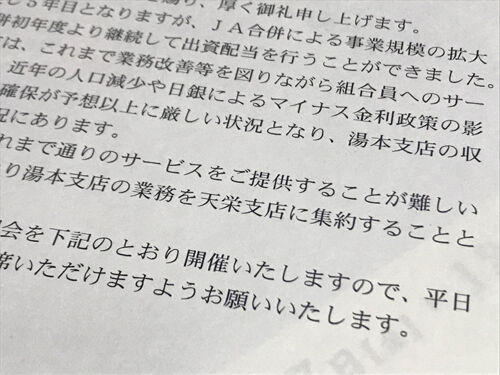 厚く御礼申し上げます。
5年目となりますが、JA合併による事業規模の拡大
併初年度より継続して出資配当を行うことができました。
は、これまで業務改善等を図りながら組合員へのサー
近年の人口減少や日銀によるマイナス金利政策の影
確保が予想以上に厳しい状況となり、湯本支店の収
況にあります。
れまで通りのサービスをご提供することが難しい
り湯本支店の業務を天栄支店に集約することと
会を下記のとおり開催いたしますので、平日
席いただけますようお願いいたします。